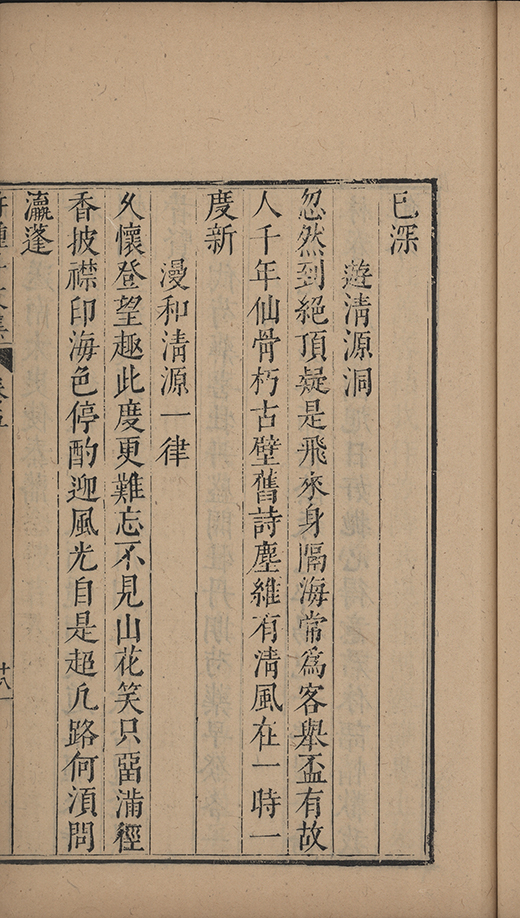 已深
遊清源洞
忽然到絕頂疑是飛來身隔海常為客舉盃有故
人千年仙骨朽古壁舊詩塵維有清風在一時一
度新
漫和清源一律
久懷登望趣此度更難忘不見山花笑只畱滿徑
香披襟印海色停酌迎風光自是超凢路何湏問
瀛蓬
卷五
十八